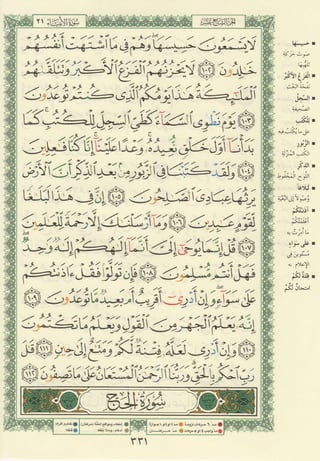 الجزء السابع عشر
سورة الأنبياء ٢١
لَا يَسْمَعُونَ حَسِيسَهَا وَهُمْ فِي مَا ٱشْتَهَتْ أَنفُسُهُمْ
خَٰلِدُونَ ١٠٢ لَا يَحْزُنُهُمُ ٱلْفَزَعُ ٱلْأَكْبَرُ وَتَتَلَقَّىٰهُمُ
ٱلْمَلَٰٓئِكَةُ هَٰذَا يَوْمُكُمُ ٱلَّذِي كُنتُمْ تُوعَدُونَ
١٠٣ يَوْمَ نَطْوِي ٱلسَّمَآءَ كَطَيِّ ٱلسِّجِلِّ لِلْكُتُبِ كَمَا
بَدَأْنَآ أَوَّلَ خَلْقٍ نُّعِيدُهُۥ وَعْدًا عَلَيْنَآ إِنَّا كُنَّا فَٰعِلِينَ
١٠٤ وَلَقَدْ كَتَبْنَا فِي ٱلزَّبُورِ مِنۢ بَعْدِ ٱلذِّكْرِ أَنَّ ٱلْأَرْضَ
يَرِثُهَا عِبَادِيَ ٱلصَّٰلِحُونَ ١٠٥ إِنَّ فِي هَٰذَا لَبَلَٰغًا
لِّقَوْمٍ عَٰبِدِينَ ١٠٦ وَمَآ أَرْسَلْنَٰكَ إِلَّا رَحْمَةً لِّلْعَٰلَمِينَ
١٠٧ قُلْ إِنَّمَا يُوحَىٰٓ إِلَيَّ أَنَّمَآ إِلَٰهُكُمْ إِلَٰهٌ وَٰحِدٌ
فَهَلْ أَنتُم مُّسْلِمُونَ ١٠٨ فَإِن تَوَلَّوْا۟ فَقُلْ ءَاذَنتُكُمْ
عَلَىٰ سَوَآءٍ وَإِنْ أَدْرِيٓ أَقَرِيبٌ أَم بَعِيدٌ مَّا تُوعَدُونَ ١٠٩
إِنَّهُۥ يَعْلَمُ ٱلْجَهْرَ مِنَ ٱلْقَوْلِ وَيَعْلَمُ مَا تَكْتُمُونَ
١١٠ وَإِنْ أَدْرِي لَعَلَّهُۥ فِتْنَةٌ لَّكُمْ وَمَتَٰعٌ إِلَىٰ حِينٍ ١١١ قَٰلَ
رَبِّ ٱحْكُم بِٱلْحَقِّ وَرَبُّنَا ٱلرَّحْمَٰنُ ٱلْمُسْتَعَانُ عَلَىٰ مَا تَصِفُونَ ١١٢
سُورَةُ الْحَجِّ
حسيسها
صوت حركة
تلهبها
الفزع الأكبر
نفخة البعث
السجل
الصحيفة
الزبور
الكتب المنزلة
الذكر
اللوح المحفوظ
لبلاغا
آذنتكم
على سواء
فتنة لكم
امتحان لكم
٣٣١